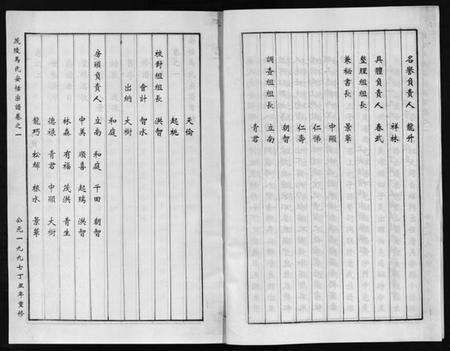 名譽負責人 龍升
祥林
具體負責人 春武
整理組組長
兼秘書長 景華
中頤
仁悌
仁壽
朝智
調查組組長 立南
青君
天倫
起桃
校對組組長 洪智
會計 智水
出納 大樹
和庭
房頭負責人 立南 和庭 千田 朝智
中萬 順喜 起瑞 洪智
林森 有福 茂洪 青生
德祿 青君 中頤 大樹
龍巧 松輝 根水 景華
茂陵馬氏安恬宗譜卷之一
公元一九九七丁丑年重修